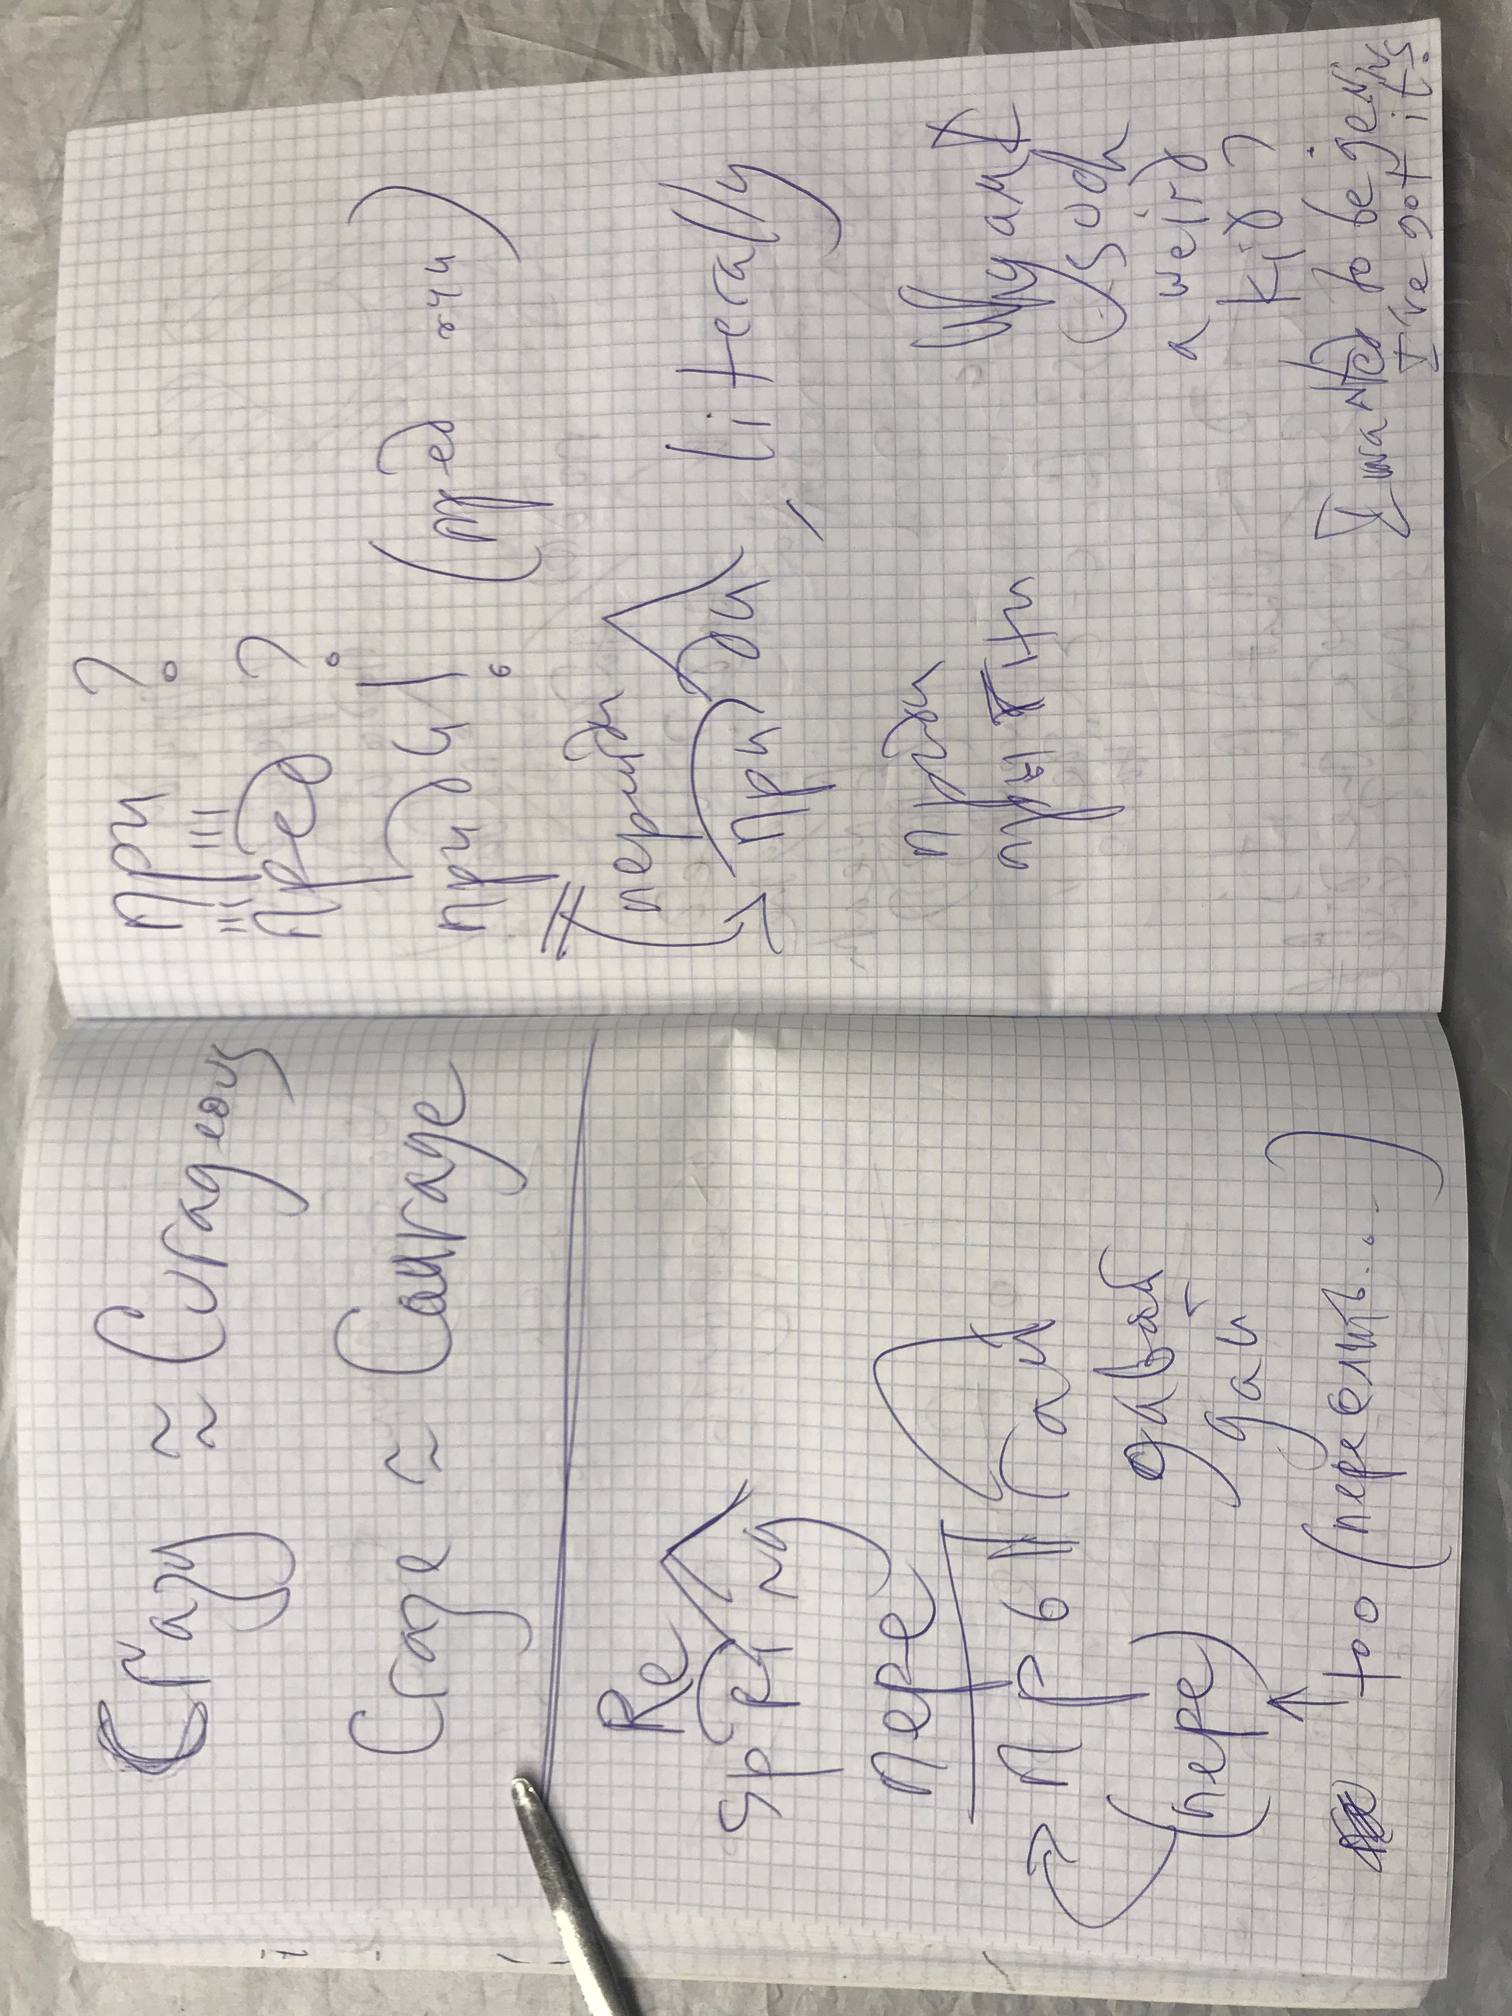 Crazy ≈ Curageous
Craze ≈ Courage
Re
Spring
пере
прыгай
(пере) давай
дай
too (перелить...)
при ?
пред ?
приди!
(пред
перийди
приди, literally
приди
прийти
Why am I
such
a weird
kid?
I wanted to be genius
I've got it.